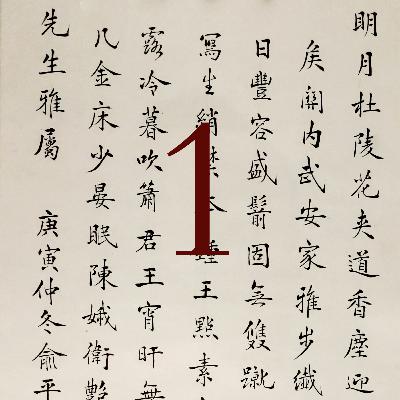 明月杜陵花夹道香塵迎
矦關内武安家雅步纖
日豐容盛鬋固無雙蹴
寫生綃禁 大 鍾王點素
露冷暮吹簫君王宵旰無
几金床少晏眠陳娥衛艶
先生雅屬 庚寅仲冬俞平
1